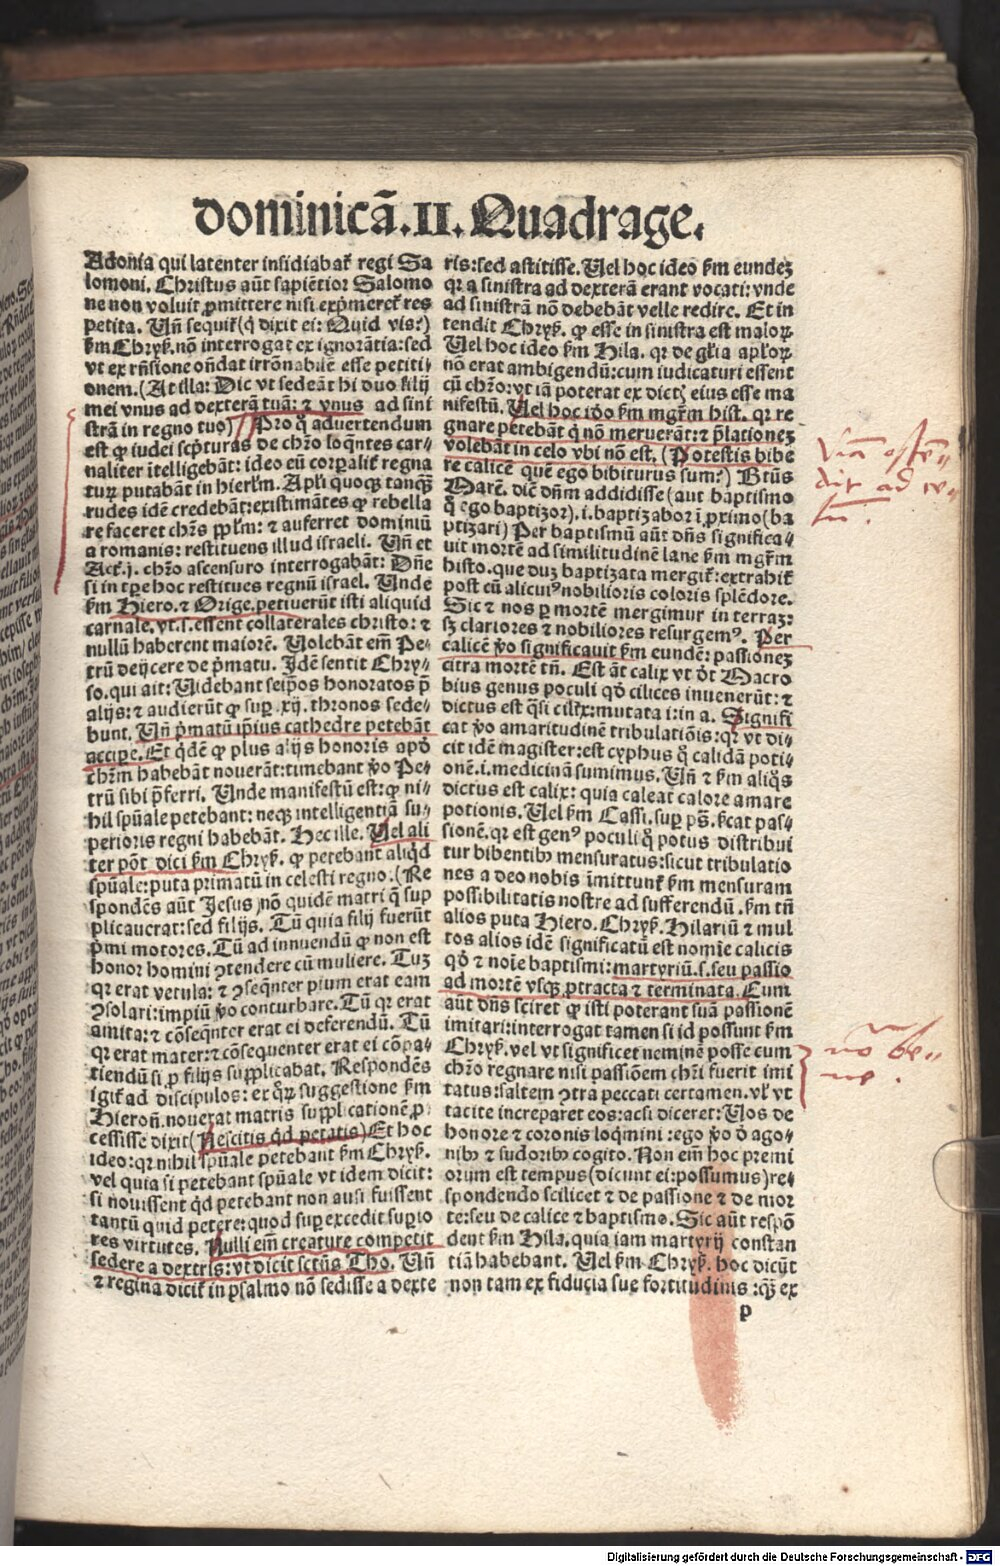 dominicã.II.Quadrage.
Adonia qui latenter insidiabat̃ regi Sa
lomoni. Christus aũt sapiẽtior Salomo
ne non voluit ꝓmittere nisi exp̃meret̃ res
petita. Uñ sequit̃ (q̃ dixit ei: Quid vis?)
fm Chryẞ. nõ interrogat ex ignorãtia: sed
vt ex rñsione oñdat irrõnabilẽ esse petiti⸗
onem. (At illa: Dic vt sedeãt hi duo filij
mei vnus ad dexterã tuã: ⁊ vnus ad sini
strã in regno tuo) Pro q̃ advertendum
est ꝙ iudei scp̃turas de chr̃o loq̃ntes car⸗
naliter ĩtelligebãt: ideo eũ corp̃alit̃ regna
turꝫ putabãt in hierlm̃. Apl̃i quoqꝫ tanqꝫ̃
rudes idẽ credebãt: existimãtes ꝙ rebella
re faceret chr̃s pp̃lm̃: ⁊ auferret dominiũ
a romanis: restituens illud israeli. Uñ et
Act.j. chr̃o ascensuro interrogabãt: Dñe
si in tꝑe hoc restitues regnũ israel. Unde
fm Hiero. ⁊ Orige. petiuerũt isti aliquid
carnale. vt.s. essent collaterales christo: ⁊
nullũ haberent maiorẽ. Uolebãt em̃ Pe⸗
trũ deijcere de p̃matu. Idẽ sentit Chry⸗
so. qui ait: Uidebant seip̃os honoratos p̃
alijs: ⁊ audierũt ꝙ sup̱ .xij. thronos sede⸗
bunt. Uñ p̃matũ ip̃ius cathedre petebãt
accipe. Et q̃dẽ ꝙ plus alijs honoris apđ
chr̃m habebãt nouerãt: timebant ꝟo Pe⸗
trũ sibi p̃ferri. Unde manifestũ est: ꝙ ni⸗
hil spũale petebant: neqꝫ intelligentiã su⸗
perioris regni habebãt. Hec ille. Uel ali
ter põt dici fm Chryẞ. ꝙ petebant aliq̃d
spũale: puta primatũ in celesti regno: (Re
spondẽs aũt Jesus) nõ quidẽ matri q̃ sup
plicaucrat: sed filijs. Tũ quia filij fuerũt
p̃mi motores. Tũ ad innuendũ ꝙ non est
honor homini ↄtendere cũ muliere. Tuꝫ
qꝛ erat vetula: ⁊ ↄseq̃nter pium erat eam
ↄsolari: impiũ ꝟo conturbare. Tũ qꝛ erat
amita: ⁊ cõseq̃nter erat ei deferendũ. Tũ
qꝛ erat mater: ⁊ cõsequenter erat ei cõpa⸗
tiendũ si ꝓ filijs supplicabat. Respondẽs
igit̃ ad discipulos: ex qꝛũ suggestione fm
Hieroñ. nouerat matris suppl cationẽ ꝓ⸗
cessisse dixit (Nescitis q̃d petatis) Et hoc
ideo: qꝛ nihil spũale petebant fm Chryẞ.
vel quia si petebant spũale vt idem dicit:
si nouissent q̃d petebant non ausi fuissent
tantũ quid petere: quod sup̱ excedit sup̱io
res virtutes. Nulli em̃ creature competit
sedere a dextris: vt dicit sctũs Tho. Uñ
⁊ regina dicit̃ in psalmo nõ sedisse a dexte
ris: sed astitisse. Uel hoc ideo fm eundeꝫ
qꝛ a sinistra ad dexterã erant vocati: vnde
ad sinistrã nõ debebãt velle redire. Et in
tendit Chryẞ. ꝙ esse in sinistra est maloꝝ
Uel hoc ideo fm Hila. qꝛ de gl̃ia apl̃oꝝ
nõ erat ambigendũ: cum iudicaturi essent
cũ chr̃o: vt iã poterat ex dictꝭ eius esse ma
nifestũ. Uel hoc iđo fm mgr̃m hist. qꝛ re
gnare petebãt q̃ nõ meruerãt: ⁊ p̃lationeꝫ
volebãt in celo vbi nõ est. (Potestis bibe
re calicẽ quẽ ego bibiturus sum?) Btũs
Marc̃. dic̃ dñm addidisse (aut baptismo
q̃ ego baptizor). i. baptizabor ĩ ꝓximo (ba
ptizari) Per baptismũ aũt dñs significa⸗
uit mortẽ ad similitudinẽ lane fm mgr̃m
histo. que duꝫ baptizata mergit̃: extrahit̃
post cũ alicuiꝰ nobilioris coloris splẽdore.
Sic ⁊ nos ꝑ mortẽ mergimur in terraꝫ:
sꝫ clariores ⁊ nobiliores resurgemꝰ. Per
calicẽ ꝟo significauit fm eundẽ: passioneꝫ
citra mortẽ tñ. Est ãt calix vt đt Macro
bius genus poculi qđ cilices inuenerũt: ⁊
dictus est q̃si cilix: mutata i: in a. Signifi
cat ꝟo amaritudinẽ tribulatiõis: qꝛ vt di⸗
cit idẽ magister: est cyphus q̃ calidã poti⸗
onẽ. i. medicinã sumimus. Uñ ⁊ fm aliq̃s
dictus est calix: quia caleat calore amare
potionis. Uel fm Cassi. sup̱ ps̃. ẞcat pas⸗
sionẽ. qꝛ est genꝰ poculi q̃ potus distribui
tur bibentibꝫ mensuratus: sicut tribulatio
nes a deo nobis ĩmittunt̃ fm mensuram
possibilitatis nostre ad sufferendũ. fm tñ
alios puta Hiero. Chryẞ. Hilariũ ⁊ mul
tos alios idẽ significatũ est nomĩe calicis
qđ ⁊ noĩe baptismi: martyriũ. s. seu passio
ad mortẽ vsqꝫ ꝓtracta ⁊ terminata. Cum
aũt dñs sciret ꝙ isti poterant suã passionẽ
imitari: interrogat tamen si id possunt fm
Chryẞ. vel vt significet neminẽ posse cum
chr̃o regnare nisi passiõem chr̃i fuerit imi
tatus: saltem ↄtra peccati certamen. vl̃ vt
tacite increparet eos: acsi diceret: Uos de
honore ⁊ coronis loq̃mini: ego ꝟo đ ago⸗
nibꝫ ⁊ sudoribꝫ cogito. Non em̃ hoc premi
orum est tempus (dicunt ei: possumus) re⸗
spondendo scilicet ⁊ de passione ⁊ de mor
te: seu de calice ⁊ baptismo. Sic aũt respõ
dent fm Hila. quia iam martyrij constan
tiã habebant. Uel fm Chryẞ. hoc dicũt
non tam ex fiducia sue fortitudinis: qꝫ̃ ex
p
Viã osten⸗
dit ad ce⸗
lũ.
no be⸗
ne.
Digitalisierung gefördert durch die Deutsche Forschungsgemeinschaft - DFG